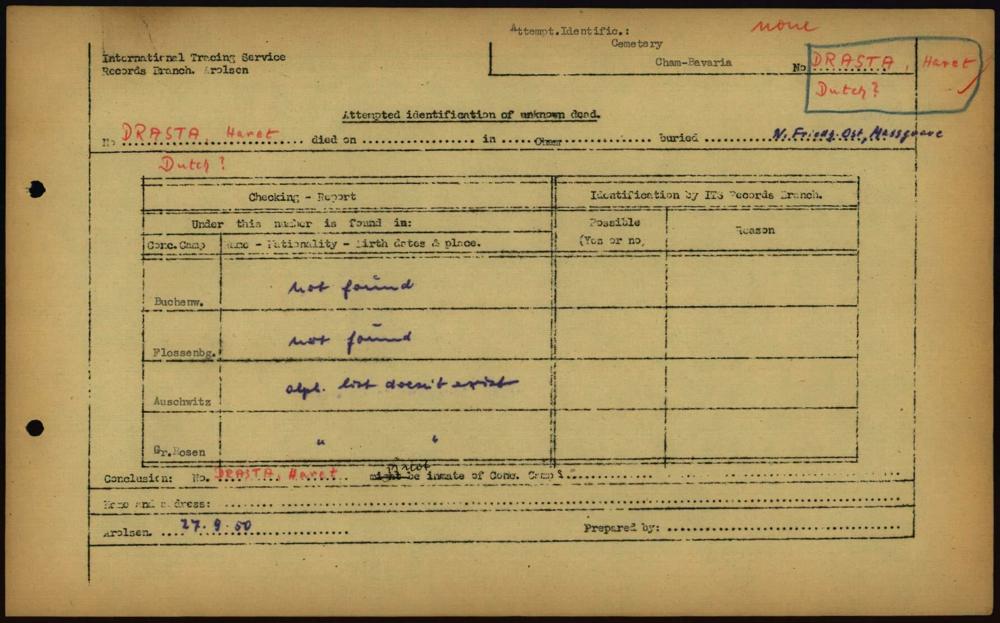 Attempt.Identific.: none
Cemetery
International Tracing Service
Records Branch. Arolsen
Cham-Bavaria
No DRASTA, Haret
Dutch?
Attempted identification of unknown dead.
No DRASTA, Haret died on .......... in .... Cham .... buried .......... N. Friedg. Ost, Massgrave
Dutch?
Checking - Report
Identification by ITS Records Branch.
Under this number is found in:
Possible
(Yes or no)
Reason
Conc.Camp
Name - Nationality - Birth dates & place.
Buchenw. not found
Flossenbg. not found
Auschwitz alph. list doesn't exist
Gr.Rosen " "
Conclusion: No. DRASTA, Haret might be inmate of Conc. Camp
Name and address:
Arolsen. 27.9.50
Prepared by: